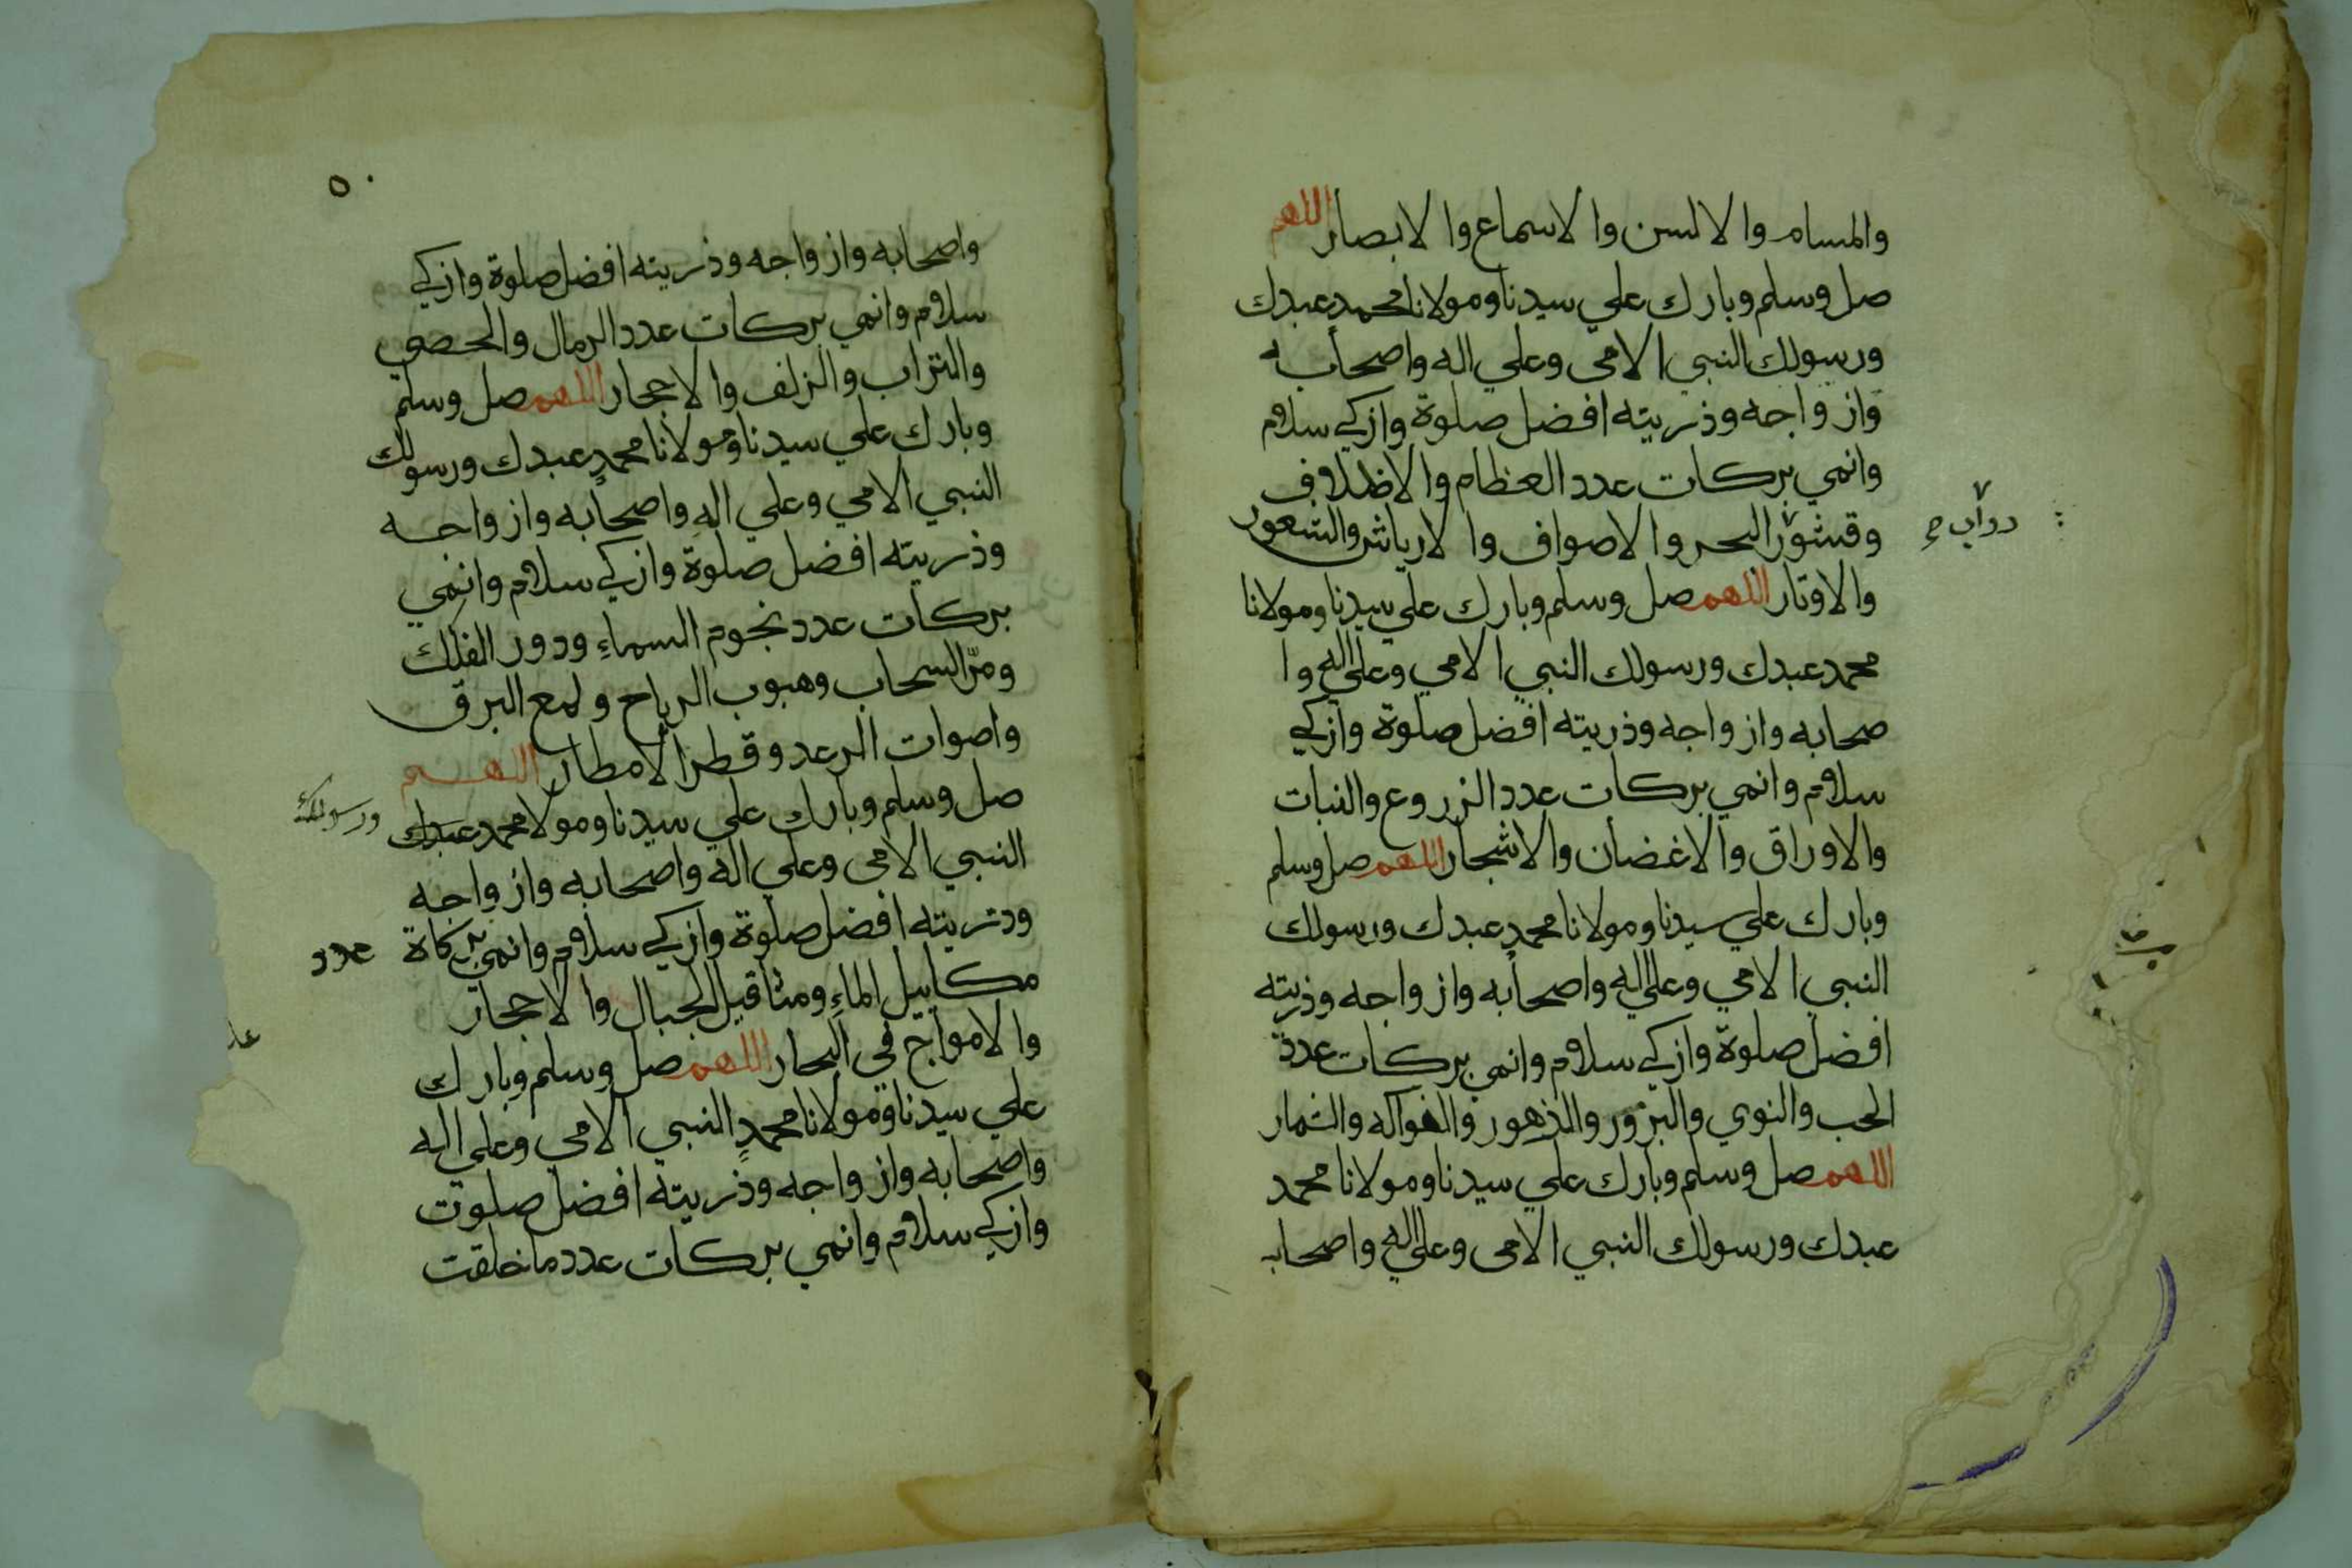 والمسام والالسن والاسماع والابصار اللهم
صل وسلم وبارك علي سيدنا ومولانا محمد عبدك
ورسولك النبي الامي وعلي اله واصحابه
وازواجه وذريته افضل صلوة وازكي سلام
وانمي بركات عدد العظام والاظلاف
وقشور البحر والاصواف والارياش والشعور
دوآب
والاوتار اللهم صل وسلم وبارك علي سيدنا ومولانا
محمد عبدك ورسولك النبي الامي وعلي اله وا
صحابه وازواجه وذريته افضل صلوة وازكي
سلام وانمي بركات عدد الزروع والنبات
والاوراق والاغضان والاشجار اللهم صل وسلم
وبارك علي سيدنا ومولانا محمد عبدك ورسولك
النبي الامي وعلي اله واصحابه وازواجه وذريته
افضل صلوة وازكي سلام وانمي بركات عدد
الحب والنوي والبزور والذهور والفواكه والثمار
اللهم صل وسلم وبارك علي سيدنا ومولانا محمد
عبدك ورسولك النبي الامي وعلي اله واصحابه
٥٠
واصحابه وازواجه وذريته افضل صلوة وازكي
سلام وانمي بركات عدد الرمال والحصي
والتراب والزلف والاحجار اللهم صل وسلم
وبارك علي سيدنا ومولانا محمدٍ عبدك ورسولك
النبي الامي وعلي اله واصحابه وازواجه
وذريته افضل صلوة وازكي سلام وانمي
بركات عدد نجوم السماءِ ودور الفلك
ومرّ السحاب وهبوب الرياح ولمع البرق
واصوات الرعد وقطر الامطار اللهم
صل وسلم وبارك علي سيدنا ومولا محمد عبدك
ورسولك
النبي الامي وعلي اله واصحابه وازواجه
وذريته افضل صلوة وازكي سلام وانمي بركاة
عدد
مكاييل الماءِ ومثاقيل الجبال والاحجار
والامواج في البحار اللهم صل وسلم وبارك
علي سيدنا ومولانا محمدٍ النبي الامي وعلي اله
واصحابه وازواجه وذريته افضل صلوت
وازكي سلام وانمي بركات عدد ما خلقت